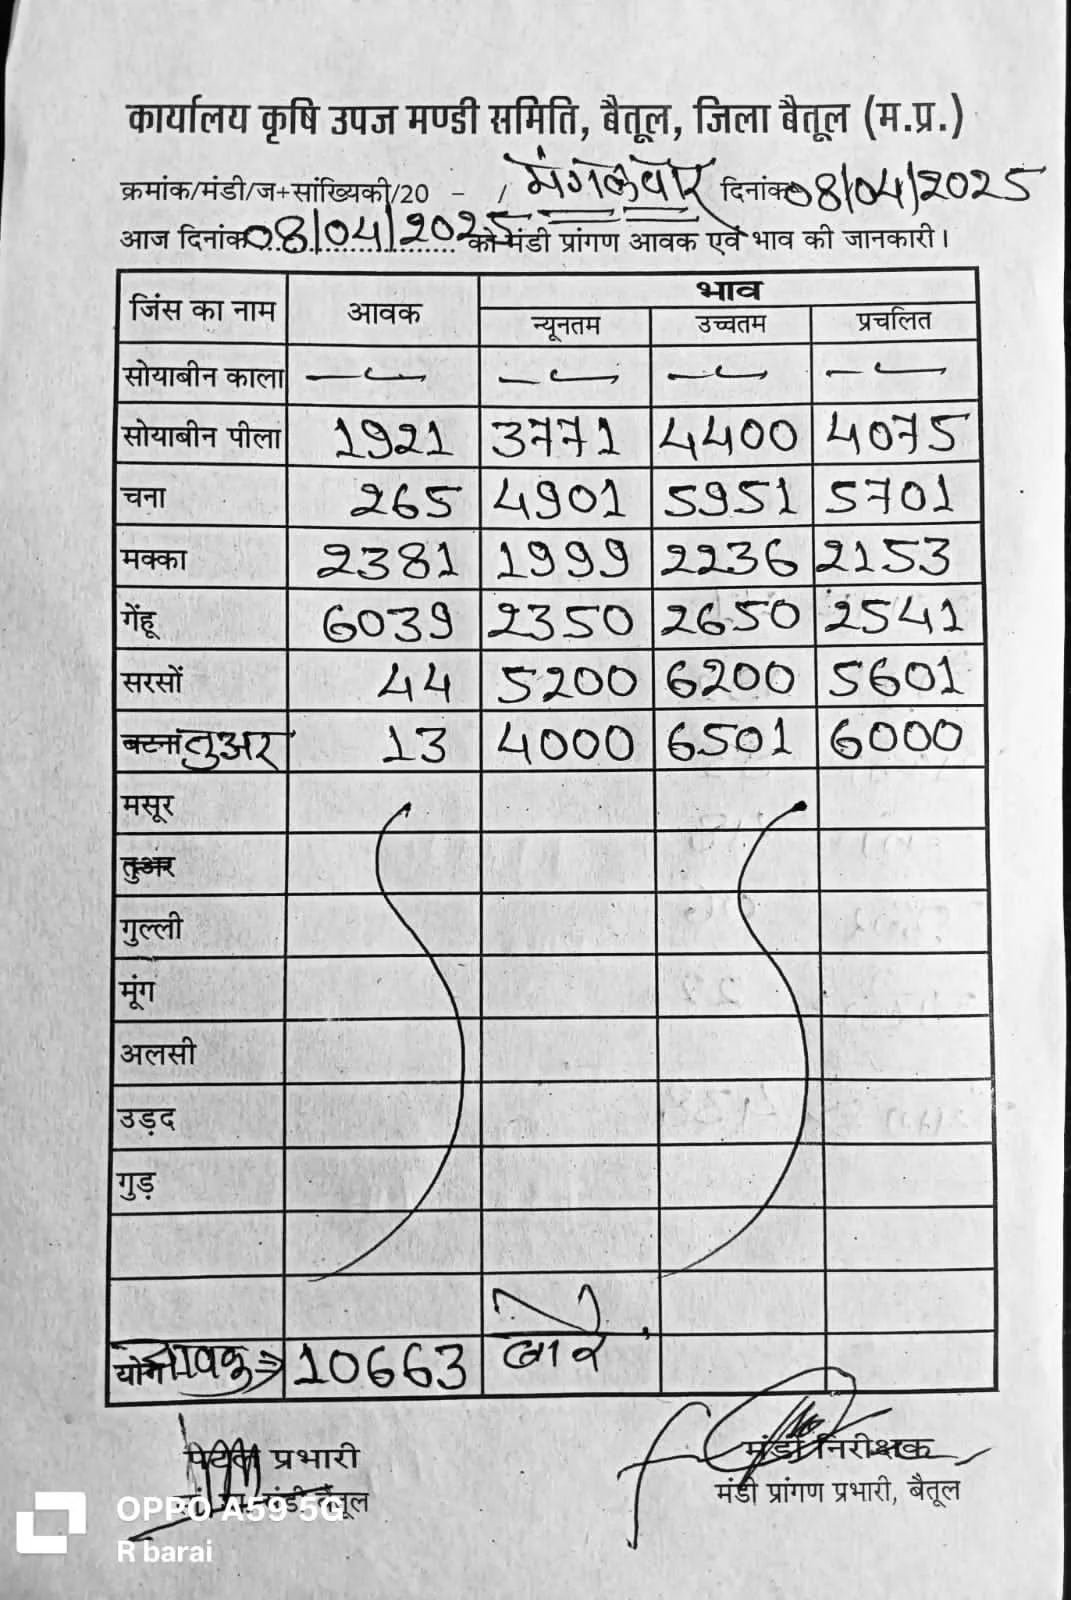 कार्यालय कृषि उपज मण्डी समिति, बैतूल, जिला बैतूल (म.प्र.)
क्रमांक/मंडी/ज+सांख्यिकी/20 - / मंगलवार दिनांक 08/04/2025
आज दिनांक 08/04/2025 को मंडी प्रांगण आवक एवं भाव की जानकारी।
जिंस का नाम आवक भाव
न्यूनतम उच्चतम प्रचलित
सोयाबीन काला — — — —
सोयाबीन पीला 1921 3771 4400 4075
चना 265 4901 5951 5701
मक्का 2381 1999 2236 2153
गेंहू 6039 2350 2650 2541
सरसों 44 5200 6200 5601
बटना तुअर 13 4000 6501 6000
मसूर
तुअर
गुल्ली
मूंग
अलसी
उड़द
गुड़
योग आवक ⇒ 10663 बोरे
प्रभारी मंडी निरीक्षक
मंडी बैतूल मंडी प्रांगण प्रभारी, बैतूल
OPPO A59 5G
R barai